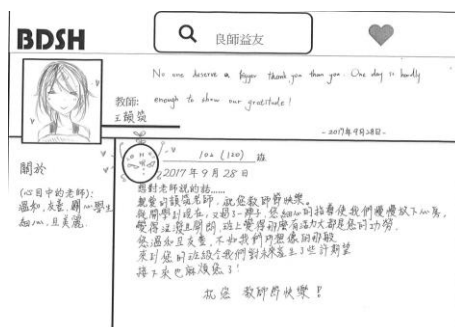 BDSH
良師益友
No one deserve a bigger thank you than you. One day is hardly
enough to show our gratitude!
教師:
王韻筑
-2017年9月28日-
106 (120) 班
2017年9月28日
關於
(心目中的老師):
溫和、友善、關心學生
細心、且美麗
想對老師說的話......
親愛的韻筑老師,祝您教師節快樂。
從開學到現在,又過了一陣子,您細心的指導使我們慢慢放下心房,
變得活潑且開朗,班上變得那麼有活力大都是您的功勞,
您溫和且友善,不如我們所想像的那般
來到您的班級令我們對未來產生了些許期望
接下來也麻煩您了!
祝您 教師節快樂!